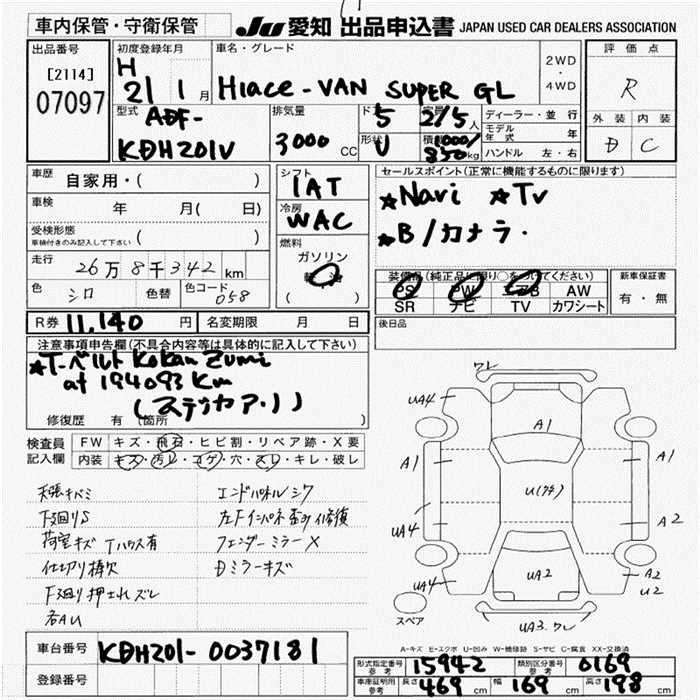 車内保管・守衛保管
JU 愛知 出品申込書 JAPAN USED CAR DEALERS ASSOCIATION
出品番号
[2114]
07097
初度登録年月
H
21 1月
車名・グレード
Hiace-VAN SUPER GL
2WD
・
4WD
評価点
R
外装 内装
D C
型式
ADF-
KDH201V
排気量
3000 CC
ドア
5
形状
U
定員
2/5人
積載
1000/
850kg
ディーラー・並行
モデル年式 年
ハンドル 左・右
車歴
自家用・( )
車検 年 月(日)
受検形態
車検付きのみ記入して下さい ( )
走行
26万8千342km
色
シロ
色替
色コード
058
シフト
IAT
冷房
WAC
燃料
ガソリン
軽油
( )
セールスポイント(正常に機能するものに限ります)
★Navi ★Tv
★B/カメラ・
装備品(純正品に限り○をつけてください)
PS PW AB AW
SR ナビ TV カワシート
新車保証書
有・無
R券 11,140円 名変期限 月 日
後日品
注意事項申告欄(不具合内容等は具体的に記入して下さい)
★T-ベルト Kokan Zumi
at 194093 Km
(ステッカア・)
修復歴 有(箇所 )
検査員記入欄
FW キズ・飛石・ヒビ割・リペア跡・X要
内装 キズ・汚レ・コゲ・穴・スレ・キレ・破レ
天張キバミ エンドパネルシワ
下廻りS 左Fインパネ歪み修復
荷室キズ Tハウス有 フェンダーミラーX
仕切り棒欠 Dミラーキズ
下廻り押され ズレ
各AU
ワレ
UA4
A1
A1 A1
U(アキ)
UA4 A2
UA2
UA4 A2
U2
スペア
UA3.ワレ
A-キズ E-エクボ U-凹み W-補修跡 S-サビ C-腐食 XX-交換済
車台番号
KDH201-0037181
登録番号
形式指定番号
参考
15942
類別区分番号
参考
0169
車庫証明用
参考
長さ 469cm 幅 169cm 高さ 198cm